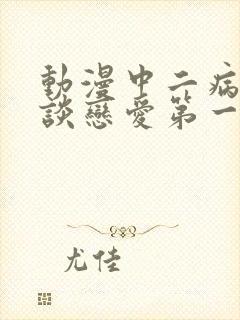 動漫中二病
談戀愛第一
尤佳